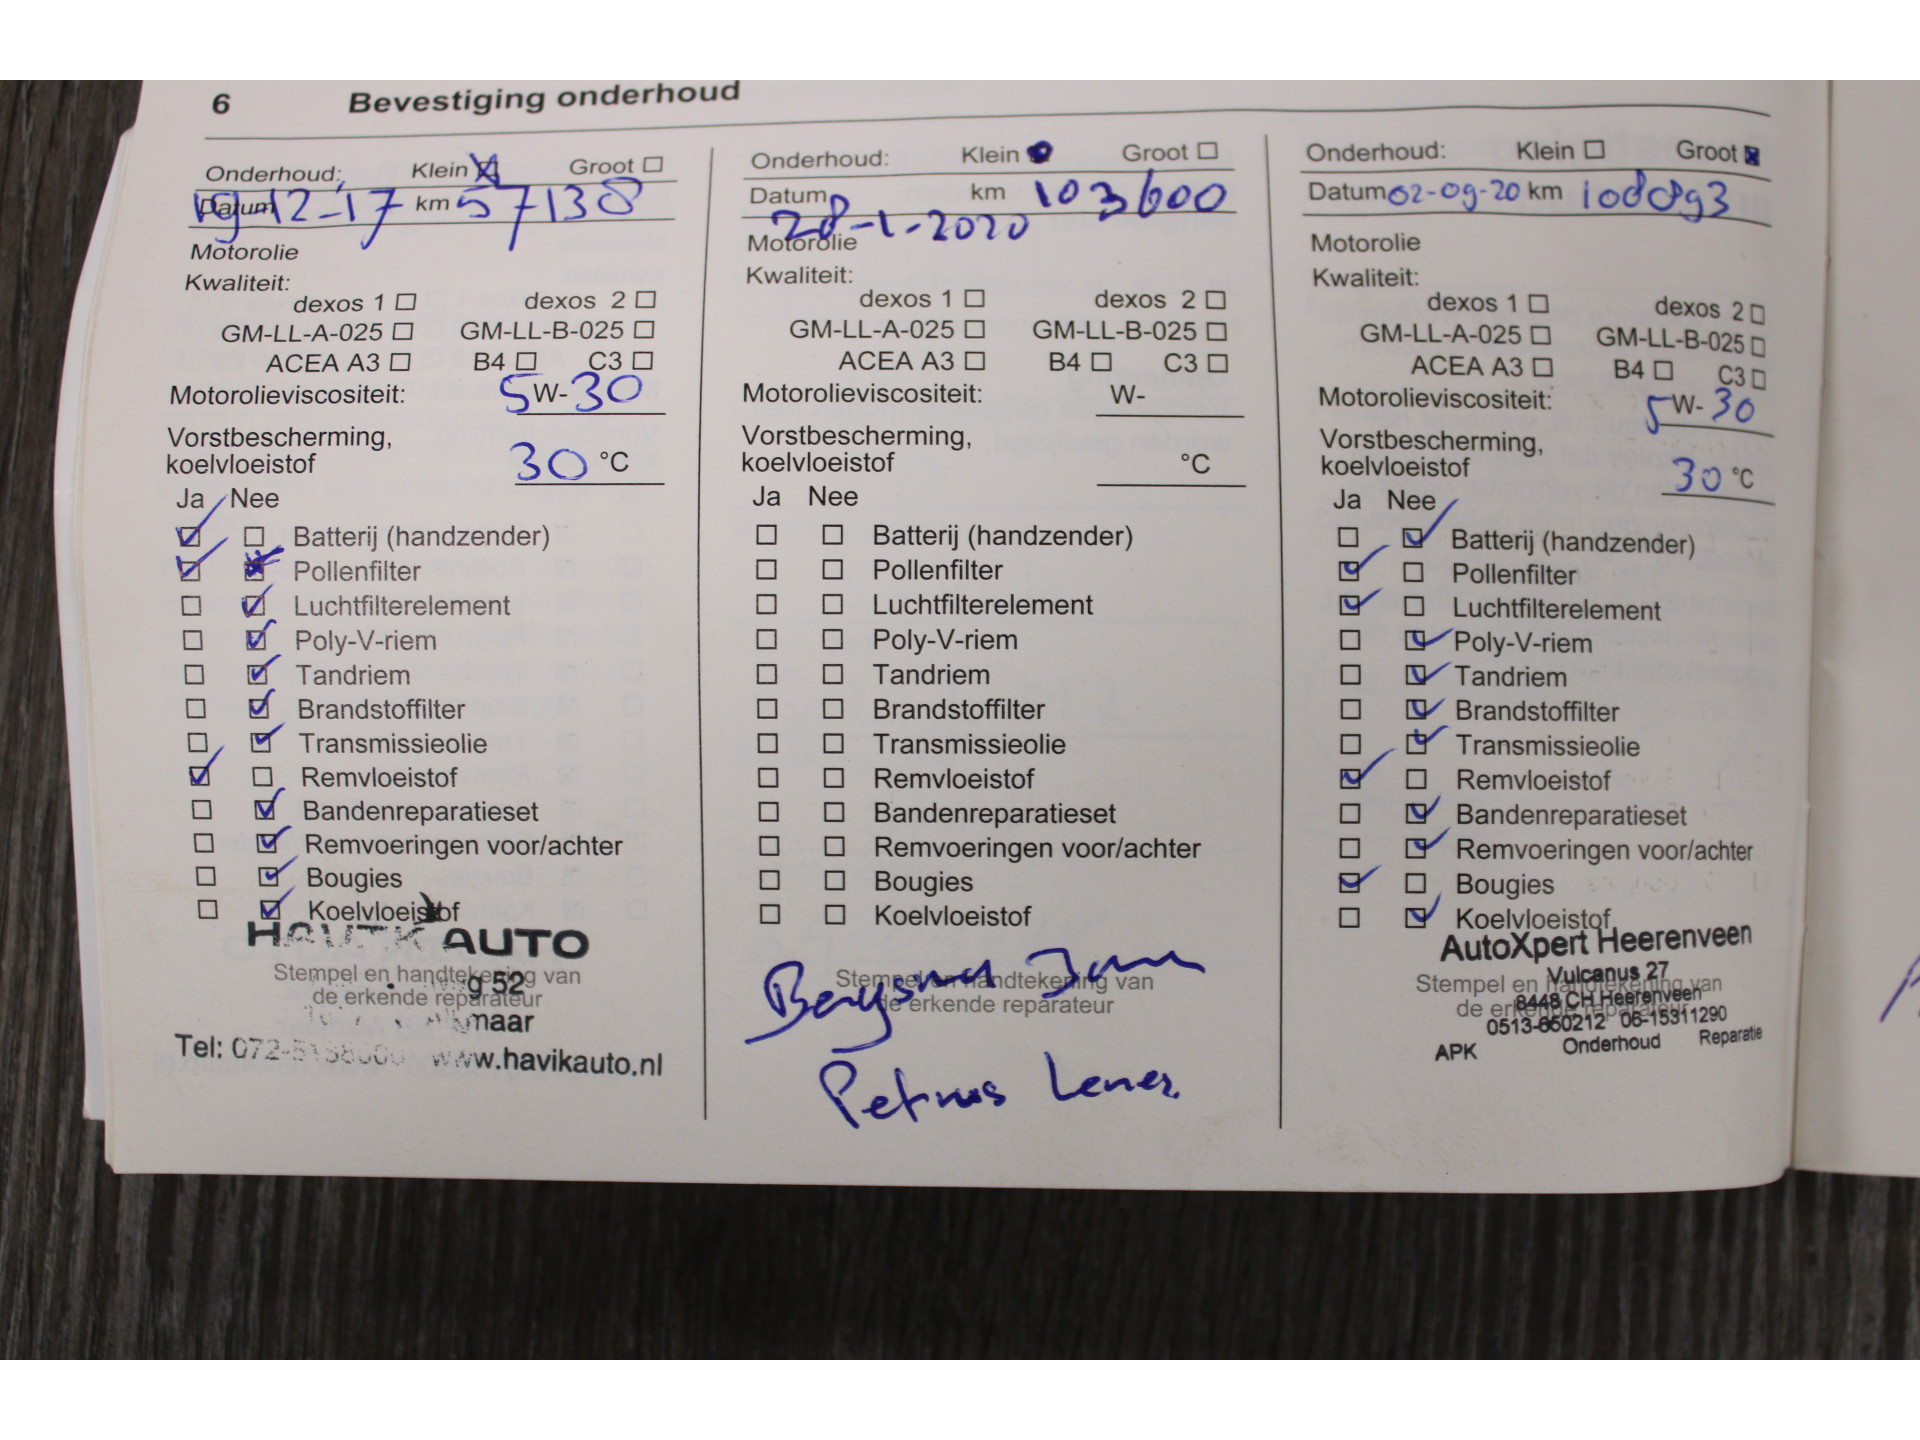 6 Bevestiging onderhoud
Onderhoud: Klein Groot
Datum 19-12-17 km 57138
Motorolie
Kwaliteit:
dexos 1 dexos 2
GM-LL-A-025 GM-LL-B-025
ACEA A3 B4 C3
Motorolieviscositeit: 5W-30
Vorstbescherming,
koelvloeistof 30 °C
Ja Nee
Batterij (handzender)
Pollenfilter
Luchtfilterelement
Poly-V-riem
Tandriem
Brandstoffilter
Transmissieolie
Remvloeistof
Bandenreparatieset
Remvoeringen voor/achter
Bougies
Koelvloeistof
HAVIK AUTO
Stempel en handtekening van
g 52
de erkende reparateur
maar
Tel: 072- www.havikauto.nl
Onderhoud: Klein Groot
Datum km 103600
28-1-2020
Motorolie
Kwaliteit:
dexos 1 dexos 2
GM-LL-A-025 GM-LL-B-025
ACEA A3 B4 C3
Motorolieviscositeit: W-
Vorstbescherming,
koelvloeistof °C
Ja Nee
Batterij (handzender)
Pollenfilter
Luchtfilterelement
Poly-V-riem
Tandriem
Brandstoffilter
Transmissieolie
Remvloeistof
Bandenreparatieset
Remvoeringen voor/achter
Bougies
Koelvloeistof
Stempel en handtekening van
de erkende reparateur
Petrus
Onderhoud: Klein Groot
Datum 02-09-20 km 108893
Motorolie
Kwaliteit:
dexos 1 dexos 2
GM-LL-A-025 GM-LL-B-025
ACEA A3 B4 C3
Motorolieviscositeit: 5W-30
Vorstbescherming,
koelvloeistof 30 °C
Ja Nee
Batterij (handzender)
Pollenfilter
Luchtfilterelement
Poly-V-riem
Tandriem
Brandstoffilter
Transmissieolie
Remvloeistof
Bandenreparatieset
Remvoeringen voor/achter
Bougies
Koelvloeistof
AutoXpert Heerenveen
Stempel en handtekening van
Vulcanus 27
de erkende reparateur
8448 CH Heerenveen
0513-650212 06-15311290
APK Onderhoud Reparatie